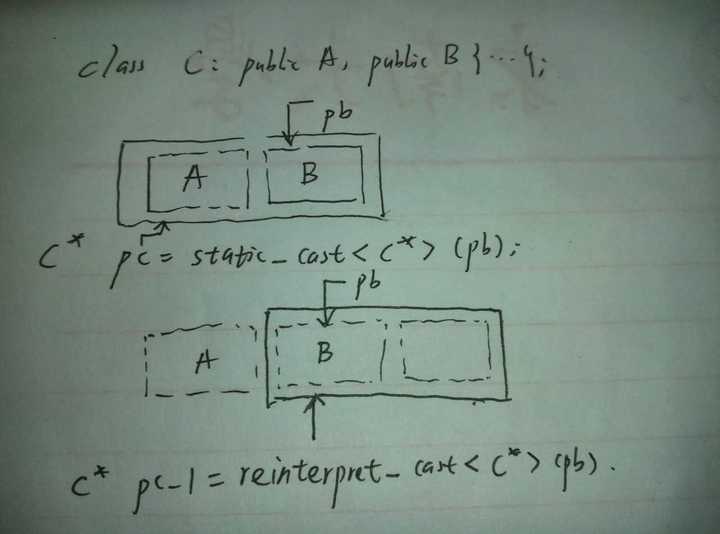 class C: public A, public B {...};
pb
A B
C* pc = static_cast<C*> (pb);
pb
A B
C* pc_1 = reinterpret_cast<C*> (pb).